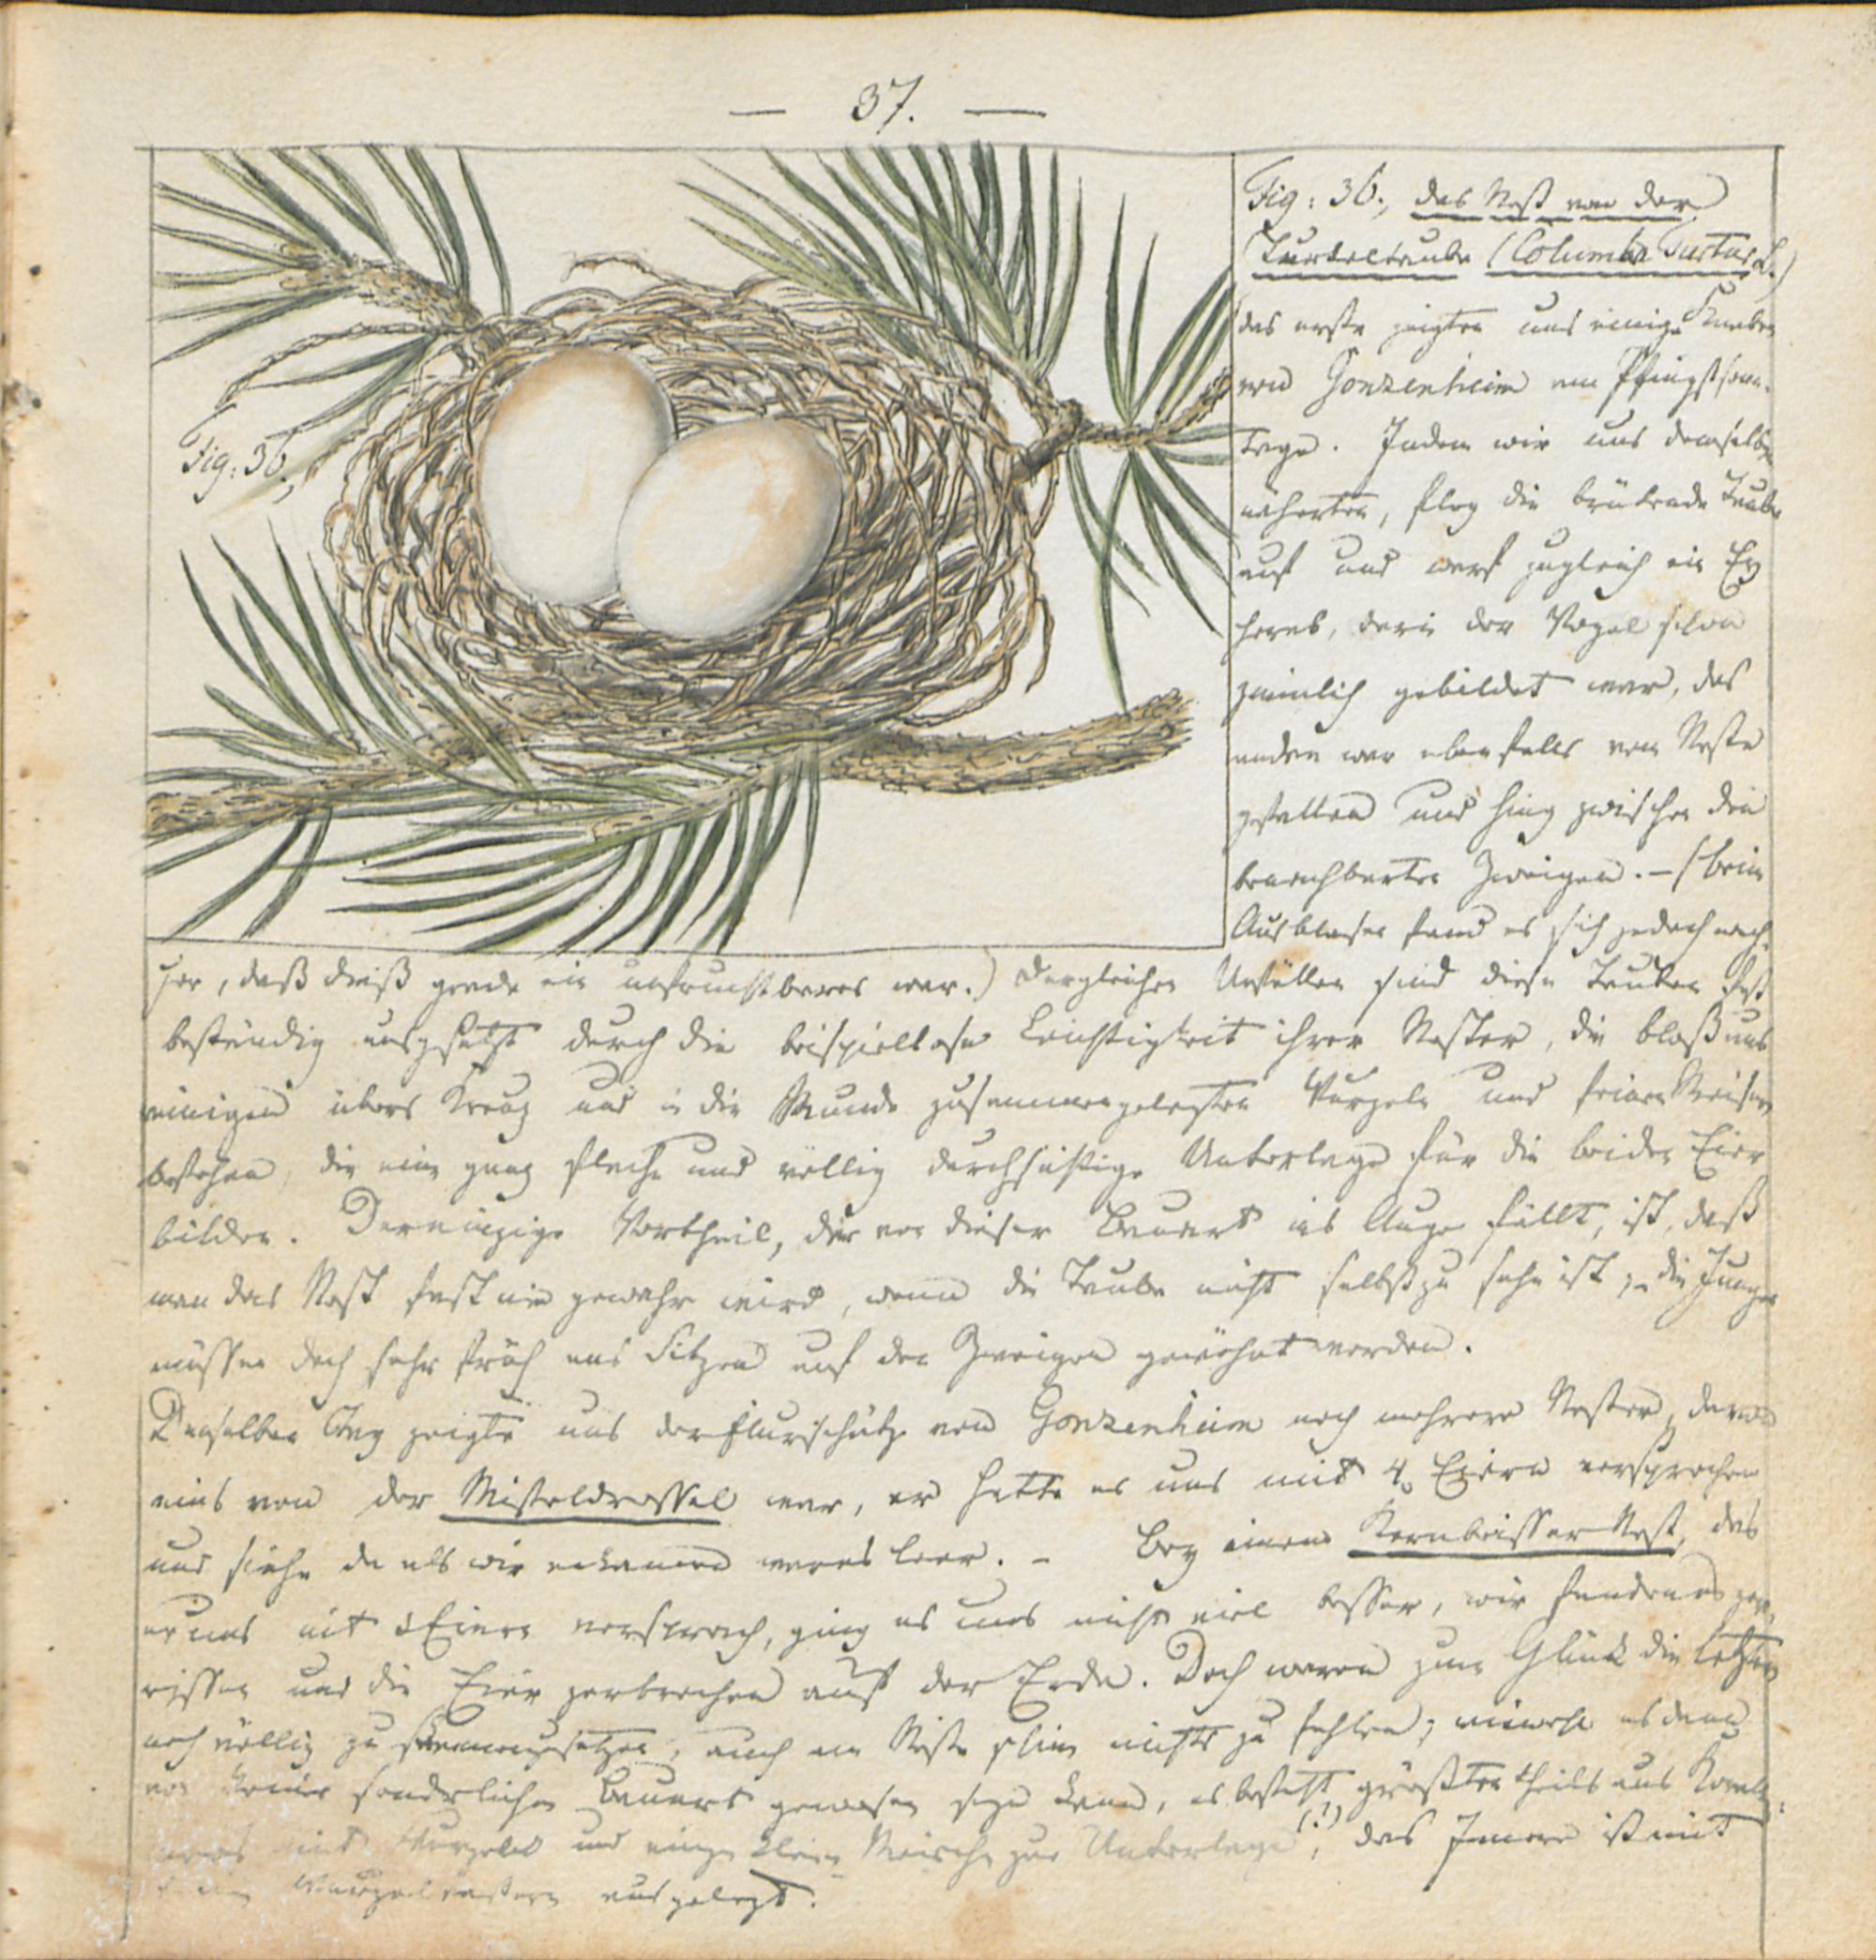 — 37. —
Fig: 36.,
Fig: 36., das Nest von der
Turteltaube (Columba Turtur L.)
das erste zeigten uns einige Knaben
von Gonzenheim am Pfingstsonn-
tage. Indem wir uns demselben
näherten, flog die brütende Taube
auf und warf zugleich ein Ey
herab, darin der Vogel schon
ziemlich gebildet war, das
andere war ebenfalls vom Neste
gefallen und hing zwischen den
benachbarten Zweigen. – (beim
Ausblasen fand es sich jedoch nach-
her, daß dieß grade ein unfruchtbares war.) Dergleichen Unfällen sind diese Tauben fast
beständig ausgesetzt durch die beispiellose Leichtigkeit ihrer Nester, die bloß aus
einigen übers Kreuz und in die Runde zusammengelegten Wurzeln und feinen Reisern
bestehen, die eine ganz flache und völlig durchsichtige Unterlage für die beiden Eier
bilden. Der einzige Vortheil, der von dieser Bauart ins Auge fällt, ist, daß
man das Nest fast nie gewahr wird, wenn die Taube nicht selbst zu sehn ist; – die Jungen
müssen doch sehr früh ans Sitzen auf den Zweigen gewöhnt werden.
Denselben Tag zeigte uns der Flurschütz von Gonzenheim noch mehrere Nester, davon
eins von der Misteldrossel war, er hatte es uns mit 4 Eiern versprochen
und siehe da als wir ankamen war es leer. – Bey einem Kernbeisser Nest, das
er uns mit 3 Eiern versprach, ging es uns nicht viel besser, wir fanden es zer-
rissen und die Eier zerbrochen auf der Erde. Doch waren zum Glück die letzten
noch völlig zusammenzusetzen, auch am Neste schien nichts zu fehlen; wiewohl es denn
von keiner sonderlichen Bauart gewesen seyn kann, es besteht größtentheils aus
mit Wurzeln und einige kleine Reischen zur Unterlage (?), das Innere ist mit
Wurzelfasern ausgelegt.